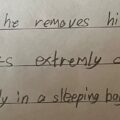 he removes hi
s extremly c
y in a sleeping bag